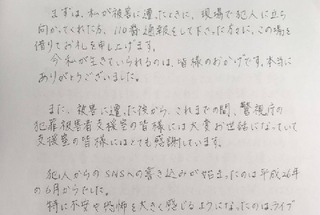 まずは、私が被害に遭ったときに、現場で犯人に立ち
向かってくれた方、110番通報をして下さった方々に、この場を
借りてお礼を申し上げます。
今、私が生きていられるのは、皆様のおかげです。本当に
ありがとうございました。
また、被害に遭った後から、これまでの間、警視庁の
犯罪被害者支援室の皆様には大変お世話になっていて
支援室の皆様にはとても感謝しています。
犯人からのSNSへの書き込みが始まったのは平成26年
の6月からでした。
特に不安や恐怖を大きく感じるようになったのは、ライブ